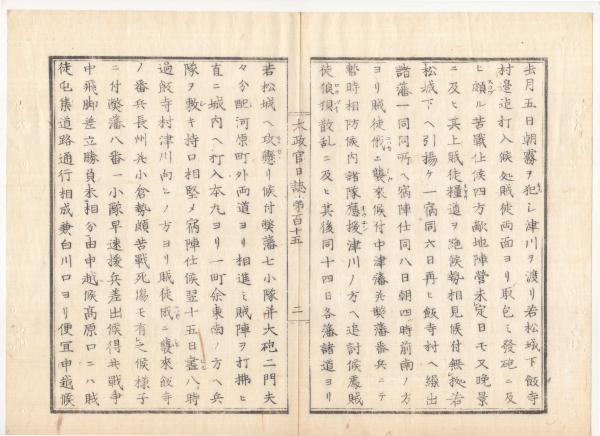 去月五日朝霧ヲ犯シ津川ヲ渡リ若松城下飯寺
村邊迄打入候処賊徒両面ヨリ取包ミ發砲ニ及
ヒ頗ル苦戰仕候四方敵地陣營未定日モ又晩景
ニ及ヒ其上賊徒糧道ヲ絶候勢相見候付無拠若
松城下ヘ引揚ケ一宿同六日再ヒ飯寺村ヘ繰出
諸藩一同同所ヘ宿陣仕同八日朝四時前南ノ方
ヨリ賊徒俄ニ襲來候付中津藩共弊藩番兵ニテ
暫時相防候内諸隊應援津川ノ方ヘ追討候處賊
徒狼狽散乱ニ及ヒ其後同十四日各藩諸道ヨリ
太政官日誌第百十五
二
若松城ヘ攻懸リ候付弊藩七小隊并大砲二門夫
々分配河原町外両道ヨリ相進ミ賊陣ヲ打拂ヒ
直ニ城内ヘ打入本丸ヨリ一町余東南ノ方ヘ兵
隊ヲ敷キ持口相堅メ宿陣仕候翌十五日晝八時
過飯寺村津川向ヒノ方ヨリ賊徒俄ニ襲來飯寺
ノ番兵長州共小倉勢頗苦戰死傷モ有之候様子
ニ付弊藩八番一小隊早速援兵差出候得共戰争
中飛脚差立勝負未相分由申越候高原口ニハ賊
徒屯集道路通行相成兼白川口ヨリ便宜申越候